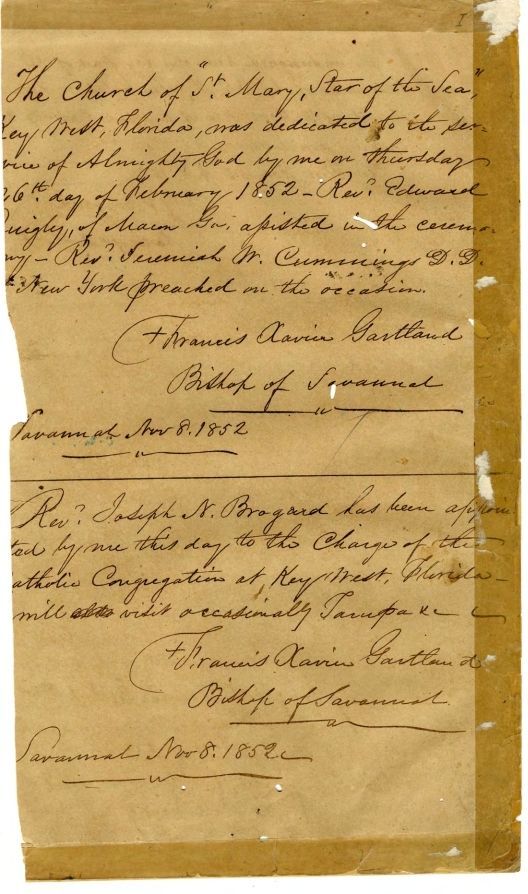 The Church of "St. Mary, Star of the Sea,"
Key West, Florida, was dedicated to the ser-
vice of Almighty God by me on Thursday
26th. day of February 1852 - Revd. Edward
Quigly, of Macon Ga, assisted in the ceremo-
ny - Revd. Jeremiah W. Cummings D.D.
New York preached on the occasion.
+ Francis Xavier Gartland
Bishop of Savannah
Savannah Nov 8. 1852
Revd. Joseph N. Brogard has been appoin
ted by me this day to the Charge of the
atholic Congregation at Key West, Florida -
will also visit occasionally Tampa &c
+ Francis Xavier Gartland
Bishop of Savannah.
Savannah Nov 8. 1852
I